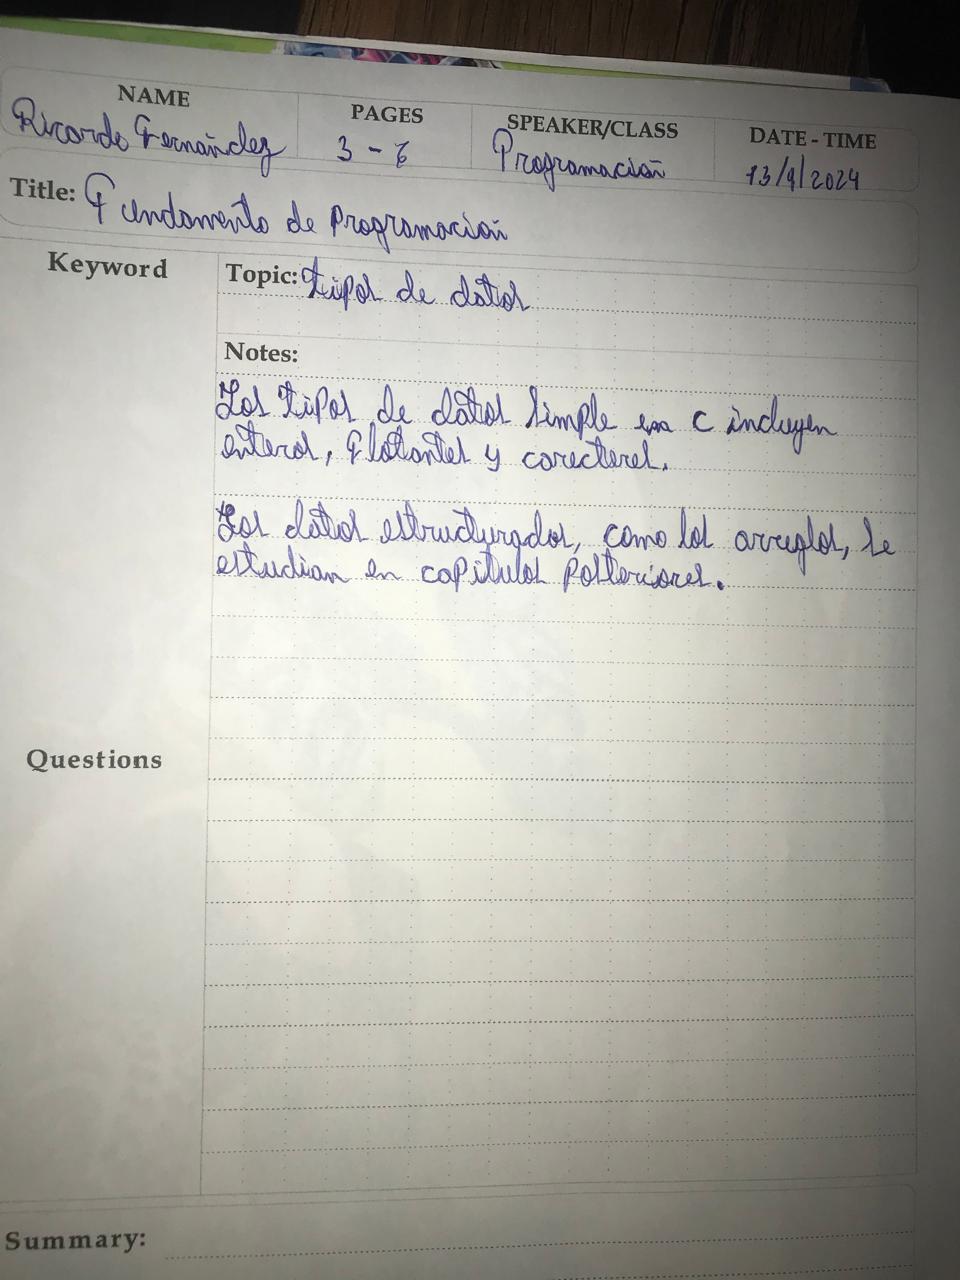 NAME
Ricardo Fernández
PAGES
3 - 6
SPEAKER/CLASS
Programación
DATE - TIME
13/9/2024
Title: Fundamento de Programación
Keyword
Topic: tipos de datos
Notes:
Los tipos de datos simple en C incluyen
enteros, flotantes y carecteres.
Los datos estructurados, como los arreglos, se
estudian en capitulos Posteriores.
Questions
Summary: